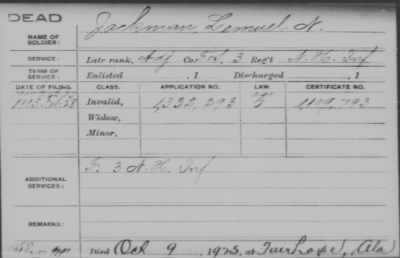 DEAD
NAME OF SOLDIER: Jackman, Lemuel N.
SERVICE: Late rank, Adj Co. F.S., 3 Reg't N.H. Inf
TERM OF SERVICE: Enlisted , 1 Discharged , 1
DATE OF FILING. CLASS. APPLICATION NO. LAW. CERTIFICATE NO.
Invalid, 1,332,293 1,109,793
Widow,
Minor,
F. 3 N.H. Inf
ADDITIONAL SERVICES:
REMARKS:
Died Oct 9, 1925, at Fairhope, Ala